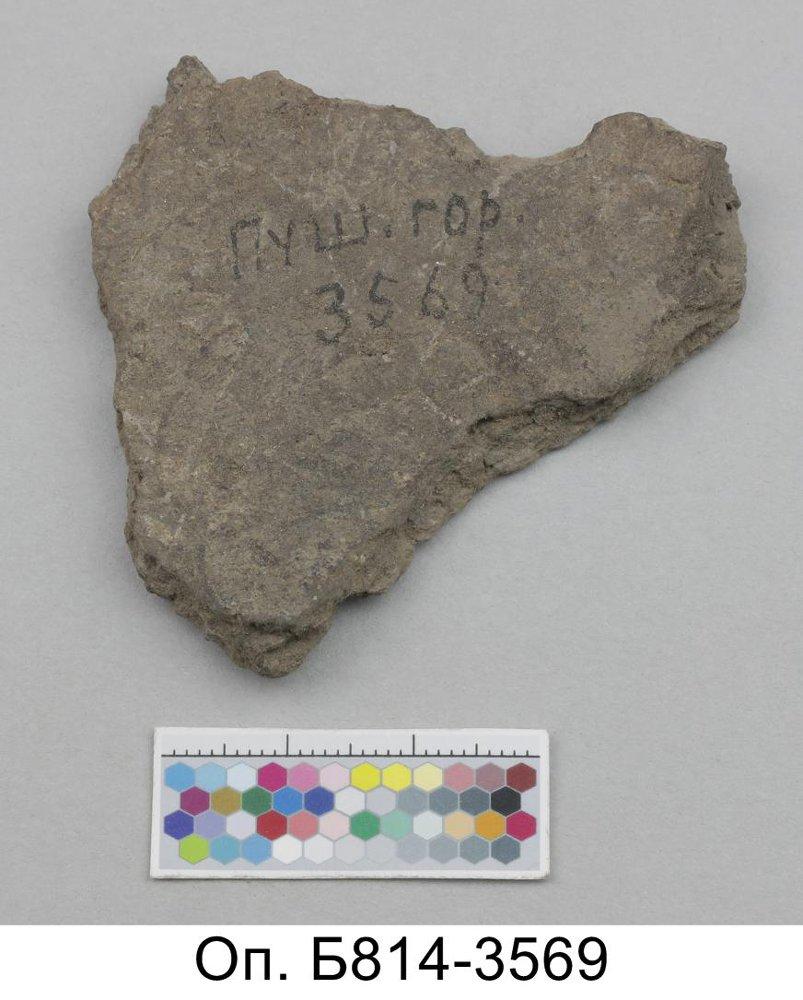 Пуш. гор.
3569
Оп. Б814-3569